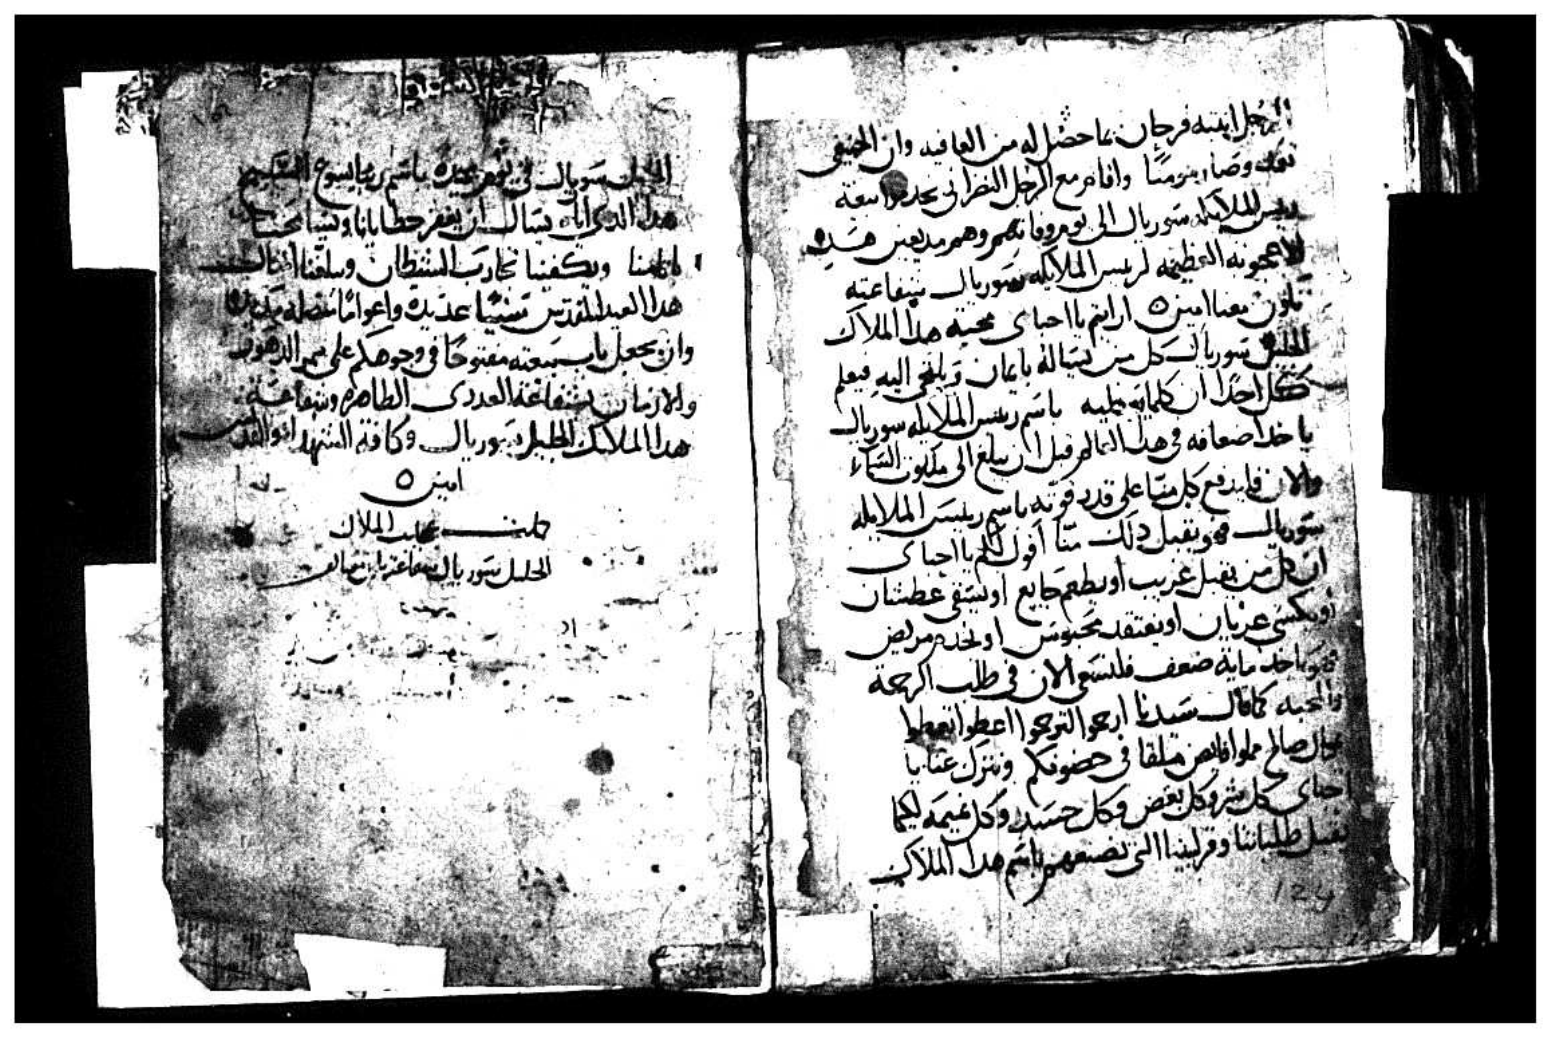 الرجل ابنه فرحان بما حصل له من العافيه وان الحنفى
وصار مومنًا واقام مع الرجل النصرانى يخدموا بيعة
رييس الملايكه سوريال الى يوم وفاتهم وهم مديعين هده
الاعجوبه العظيمه لرييس الملايكه سوريال شفاعته
تكون معنا امين ٥ ارايتم يا احباى محبة هدا الملاك
الجليل سوريال كل من يساله بايمان ويلتجى اليه فيعلم
كل احدًا ان كلمابه يطلبه باسم رييس الملايكه سوريال
ياخد اضعافه فى هدا العالم قبل ان يبلغ الى ملكوت السماء
والان فليدفع كل منّا على قدر قوته باسم رييس الملايكه
سوريال فهو يقبل دلك منّا اقول لكم يا احباى
ان كل من يقبل غريب او يطعم جايع او يسقى عطشان
او يكسى عريان او يفتقد محبوس او يخدم مريض
فهو ياخد ماية ضعف فلنسعى الان فى طلب الرحمة
والمحبه كما قال سيدنا ارحموا لترحموا اعطوا تعطوا
بكيال صالح مملوا فايض ملقا فى حضونكم ونترك عنّا يا
احباى كل شر وكل بغض وكل حسد وكل نميمه ليكما
يقبل طلباتنا وقرابيننا التى نصنعهم باسم هدا الملاك
124
الجليل سوريال فى يوم عيده باسم ربنا يسوع المسيح
هدا الدى اياه يسال ان يغفر خطايانا ويسامحنا
باتامنا ويكفينا تجارب الشيطان ويبلغنا امثال
هدا العيد المقدس سنينًا عديده واعوامًا متصله
وان يجعل باب بيعته مفتوحًا فى وجوهكم على ممر الدهور
والازمان بشفاعة العدرى الطاهره وشفاعة
هدا الملاك الجليل سوريال وكافة الشهدا والقديسين
امين ٥
كملت عجايب الملاك
الجليل سوريال شفاعته